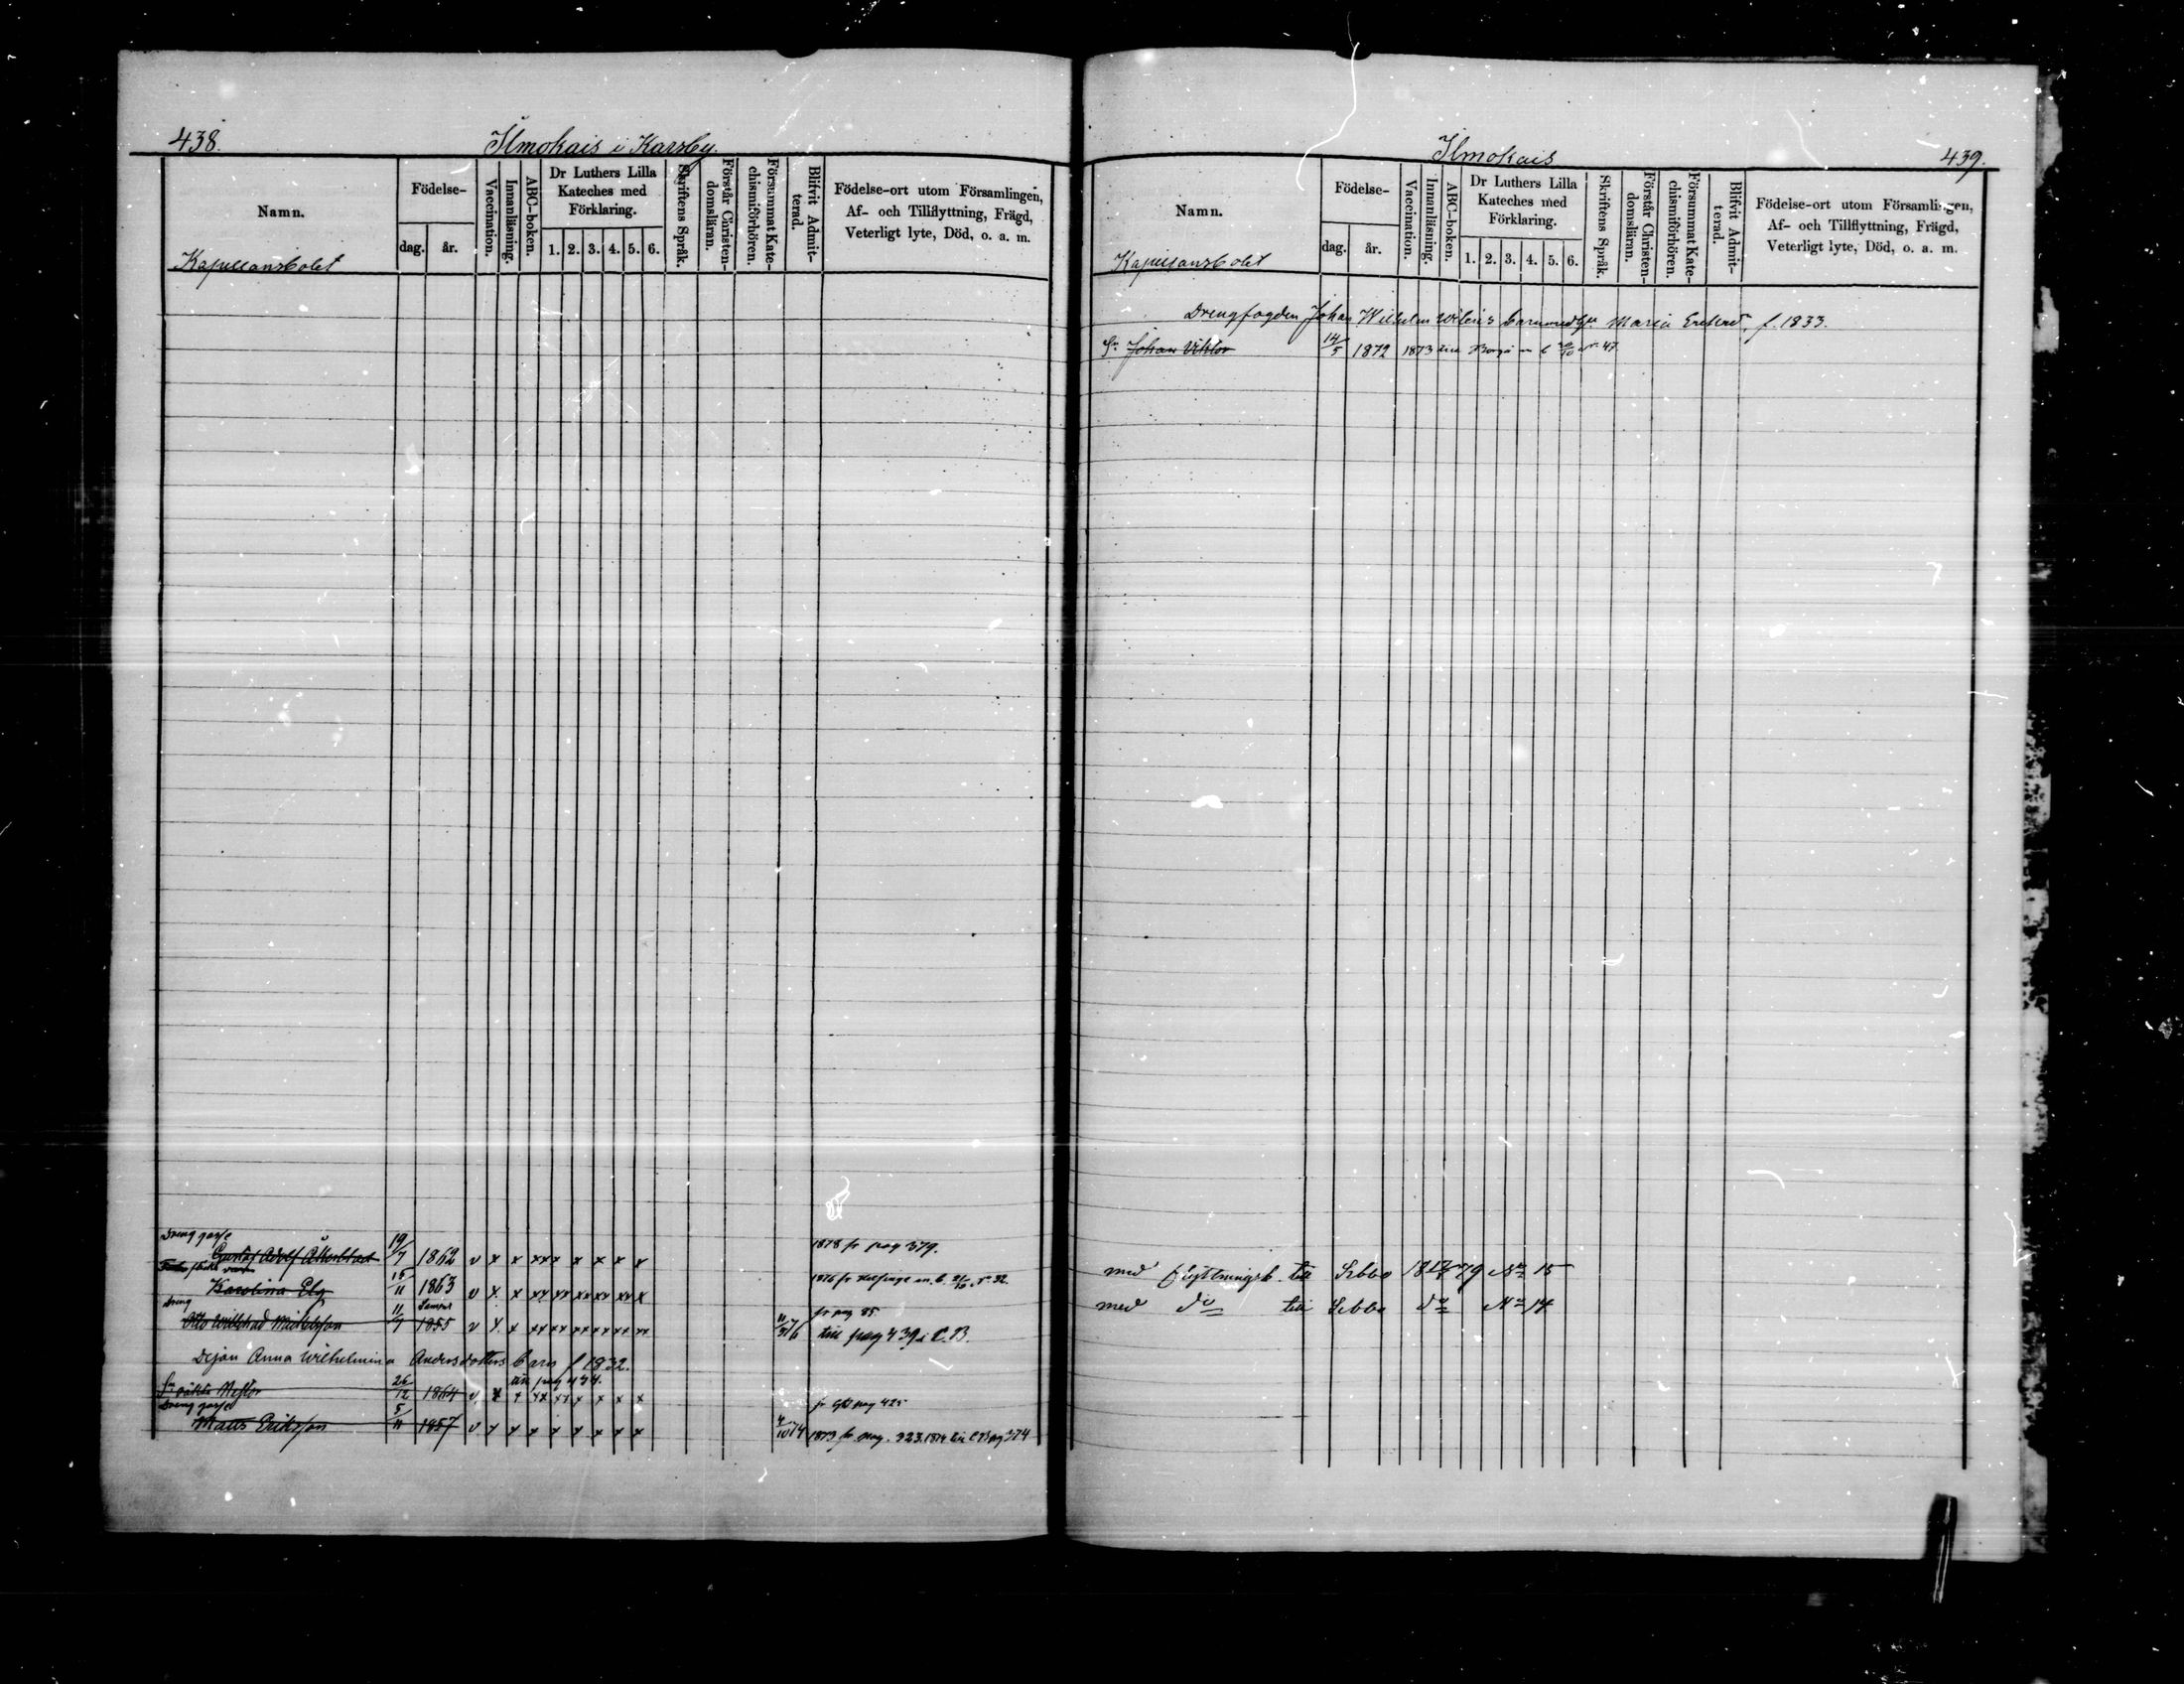 438.
Ilmokais i Karsby.
Namn.
Födelse-
dag.
år.
Vaccination.
Innanläsning.
ABC-boken.
Dr Luthers Lilla
Kateches med
Förklaring.
1. 2. 3. 4. 5. 6.
Skriftens Språk.
Förstår Christen-
domsläran.
Försummat Kate-
chismiförhören.
Blifvit Admit-
terad.
Födelse-ort utom Församlingen,
Af- och Tillflyttning, Frägd,
Veterligt lyte, Död, o. a. m.
Kapellansbolet
Dreng gosse
Gustaf Adolf Åkerblad 19/7 1862 v x x xx x x x x x 1878 fr pag 379.
Karolina Elg 15/11 1863 v x x xx xx xx xx xx x 1876 fr Helsinge m. b. No 32.
Dreng
Otto Willehad Michelsson 11/7 1855 v x x xx xx xx xx xx xx fr pag 85
till pag 439 i C. B.
Dejan Anna Wilhelmina Andersdotters barn f 1832.
till pag 434.
Sn Nestor 26/12 1864 v x x xx xx x x x x fr pag 425
Dreng gosse
Matts Eriksson 5/11 1857 v x x x x x x x x 4/10 74 1873 fr pag. 323. 1874 till CB pag 374
Ilmokais
439.
Namn.
Födelse-
dag.
år.
Vaccination.
Innanläsning.
ABC-boken.
Dr Luthers Lilla
Kateches med
Förklaring.
1. 2. 3. 4. 5. 6.
Skriftens Språk.
Förstår Christen-
domsläran.
Försummat Kate-
chismiförhören.
Blifvit Admit-
terad.
Födelse-ort utom Församlingen,
Af- och Tillflyttning, Frägd,
Veterligt lyte, Död, o. a. m.
Kapellansbolet
Drengfogden Johan Wilhelm barn med Maria f. 1833.
Sn Johan Viktor 14/5 1872 1873 till Borgå m b No 47.
med flyttningsb. till Sibbo 79 No 15
med do till Sibbo do No 14